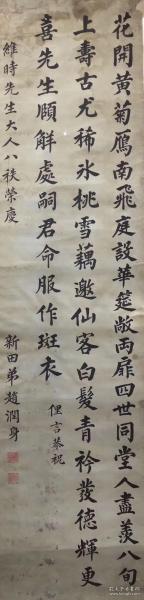 花開黃菊鴈南飛庭設華筵敞両扉四世同堂人盡羨八旬
上壽古尤稀氷桃雪藕邀仙客白髮青衿發德輝更
喜先生頤解處嗣君命服作斑衣
俚言恭祝
維時先生大人八秩榮慶
新田弟趙潤身